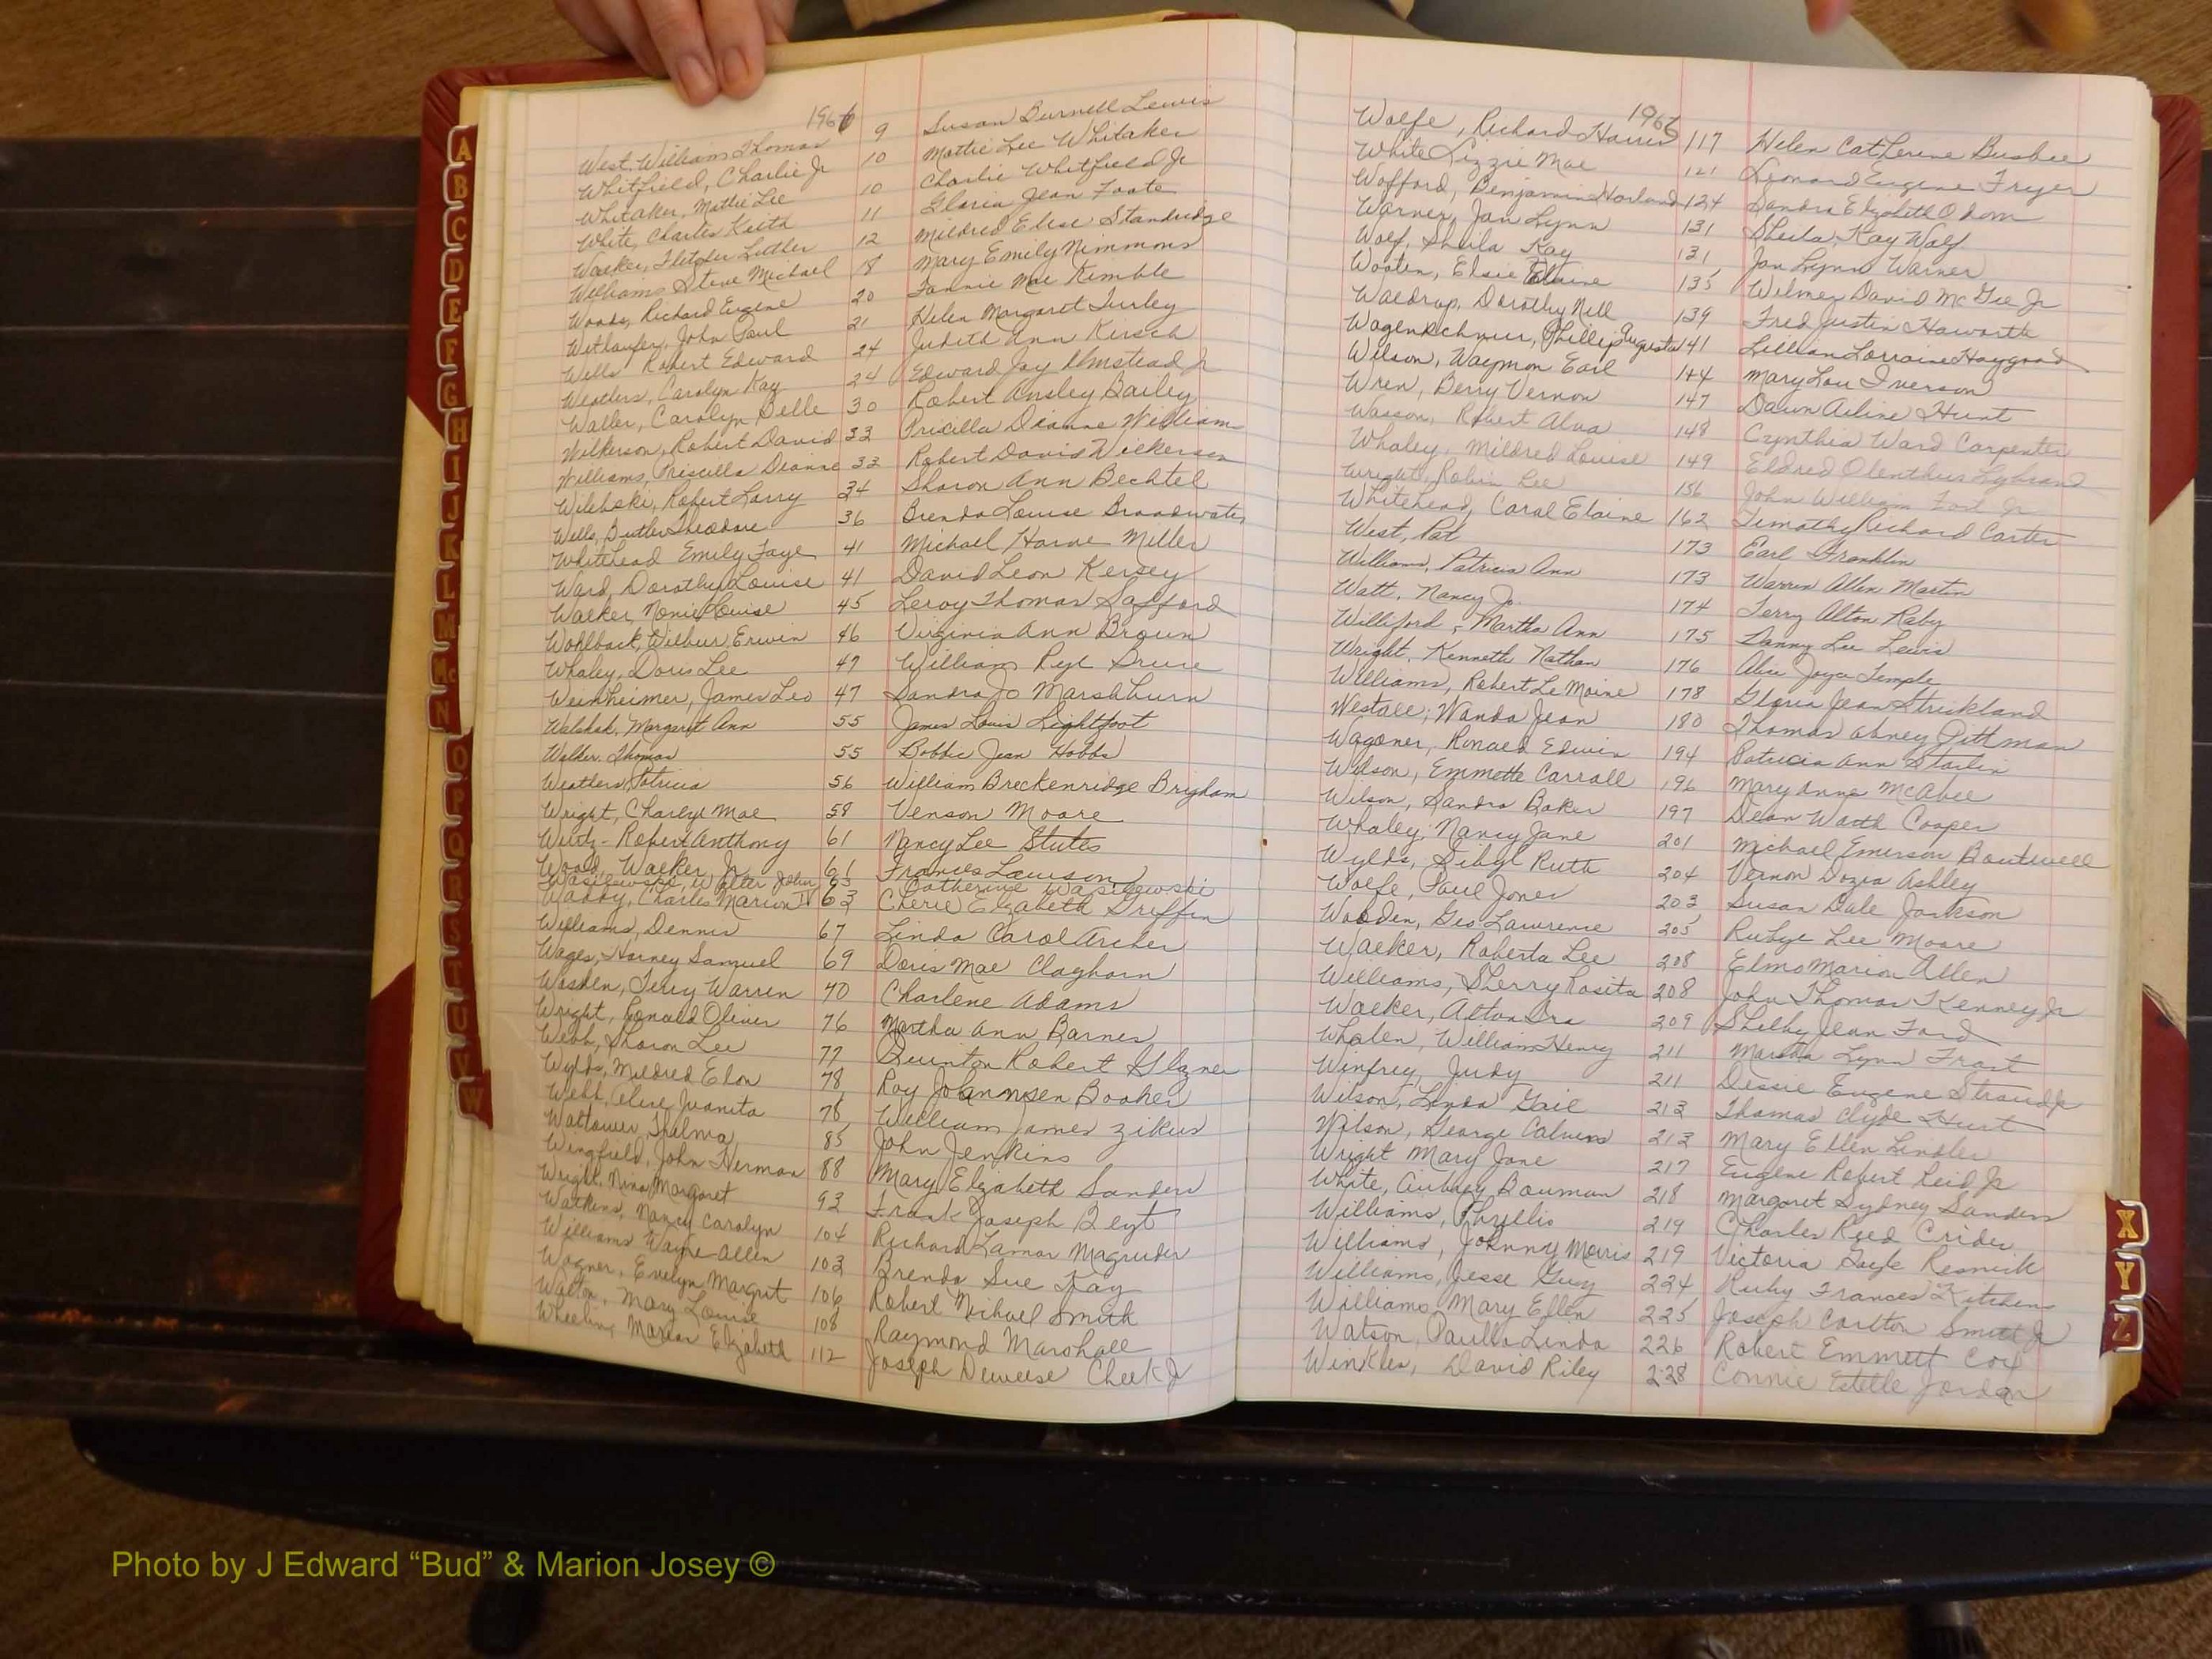 1966
West, William Thomas 9 Susan Burnell Lewis
Whitfield, Charlie Jr 10 Mattie Lee Whitaker
Whitaker, Mattie Lee 10 Charlie Whitfield Jr
White, Charles Keith 11 Gloria Jean Foote
Walker, Fletcher Luther 12 Mildred Elise Standridge
Williams Steve Michael 18 Mary Emily Nimmons
Woods, Richard Eugene 20 Fannie Mae Kimble
Wetlaufer, John Paul 21 Helen Margaret Turley
Wells Robert Edward 24 Judith Ann Kirsch
Weathers, Carolyn Kay 24 Edward Jay Olmstead Jr
Waller, Carolyn Belle 30 Robert Ansley Bailey
Wilkerson, Robert David 33 Pricilla Dianne Williams
Williams, Priscilla Dianne 33 Robert David Wilkerson
Robert Larry 34 Sharon Ann Bechtel
Wells, Butler Theodore 36 Brenda Louise Broadwater
Whitehead Emily Faye 41 Michael Harve Miller
Ward, Dorothy Louise 41 David Leon Kersey
Walker, Nonie Louise 45 Leroy Thomas Safford
Wohlback, Wilbur Erwin 46 Virginia Ann Broun
Whaley, Doris Lee 47 William Pyl
Weinheimer, James Leo 47 Sandra Jo Marshburn
Margaret Ann 55 James Louis Lightfoot
Walker, Thomas 55 Bobbie Jean Hobbs
Weathers, Patricia 56 William Breckenridge Brigham
Wright, Charlye Mae 58 Venson Moore
Wirtz - Robert Anthony 61 Nancy Lee Stutes
Wood, Walker Jr 61 Frances Lawson
Wasilewski, Walter John 63 Catherine Wasilewski
Waddy, Charles Marion IV 63 Cherie Elizabeth Griffin
Williams, Dennis 67 Linda Carol Archer
Wages, Harvey Samuel 69 Doris Mae Claghorn
Wosden, Terry Warren 70 Charlene Adams
Wright, Ronald Oliver 76 Martha Ann Barnes
Webb, Sharon Lee 77 Quinton Robert Glazner
Wylds, Mildred Elon 78 Roy Johannsen Booker
Webb, Alice Juanita 78 William James Zikus
Waltower, Thelma 85 John Jenkins
Wingfield, John Herman 88 Mary Elizabeth Sanders
Wright, Nina Margaret 93 Frank Joseph Beyt
Watkins, Nancy Carolyn 104 Richard Lamar Magruder
Williams Wayne Allen 103 Brenda Sue Kay
Wagner, Evelyn Margrit 106 Robert Michael Smith
Walton, Mary Louise 108 Raymond Marshall
Wheeling Marian Elizabeth 112 Joseph Deweese Cheek Jr
1966
Wolfe, Richard Harris 117 Helen Catherine Busbee
White Lizzie Mae 121 Leonard Eugene Fryer
Wofford, Benjamin Harland 124 Sandra Elizabeth Odom
Warner, Jan Lynn 131 Sheila Kay Wolf
Wolf, Sheila Kay 131 Jan Lynn Warner
Wooten, Elsie Elaine 135 Wilmer David McGee Jr
Waldrop, Dorothy Nell 139 Fred Justin Haworth
Phillip Augusta 141 Lillian Lorraine Haygood
Wilson, Waymon Earl 144 Mary Lou Iverson
Wren, Berry Vernon 147 Dawn Arline Hunt
Wasson, Robert Alva 148 Cynthia Ward Carpenter
Whaley, Mildred Louise 149 Eldred Olenthus Lybrand
Wright, Robin Lee 156 John William Fort Jr
Whitehead, Carol Elaine 162 Timothy Richard Carter
West, Pat 173 Earl Franklin
Williams, Patricia Ann 173 Warren Allen Martin
Watt, Nancy Jo. 174 Terry Alton Raby
Williford, Martha Ann 175 Danny Lee Lewis
Wright, Kenneth Nathan 176 Alice Joyce Temple
Williams, Robert LeMoine 178 Gloria Jean Strickland
Westall, Wanda Jean 180 Thomas Abney Pittman
Wagoner, Ronald Edwin 194 Patricia Ann Starlin
Wilson, Emmette Carroll 196 Mary Anne McAbee
Wilson, Sandra Baker 197 Dean Worth Cooper
Whaley, Nancy Jane 201 Michael Emerson Boutwell
Wylds, Sibyl Ruth 204 Vernon Dozia Ashley
Wolfe, Paul Jones 203 Susan Dale Jackson
Wooden, Geo Lawrence 205 Rubye Lee Moore
Walker, Roberta Lee 208 Elmo Marion Allen
Williams, Sherry Rosita 208 John Thomas Kenney Jr
Walker, Alton Ira 209 Shelby Jean Ford
Whalen, William Henry 211 Martha Lynn Frost
Winfrey, Judy 211 Dessie Eugene Stroud Jr
Wilson, Linda Gail 213 Thomas Clyde Hurt
Wilson, George Calvin 213 Mary Ellen Lindler
Wright Mary Jane 217 Eugene Robert Reid Jr
White, Aubrey Bowman 218 Margaret Sydney Sanders
Williams, Phyllis 219 Charles Reed Crider
Williams, Johnny Morris 219 Victoria Gayle Resnick
Williams, Jesse Guy 224 Ruby Frances Kitchens
Williams, Mary Ellen 225 Joseph Carlton Smith Jr
Watson, Paulla Linda 226 Robert Emmett Cox
Winkles, David Riley 228 Connie Estelle Jordan
A
B
C
D
E
F
G
H
I
J
K
L
M
Mc
N
O
P
Q
R
S
T
U
V
W
X
Y
Z
Photo by J Edward “Bud” & Marion Josey ©